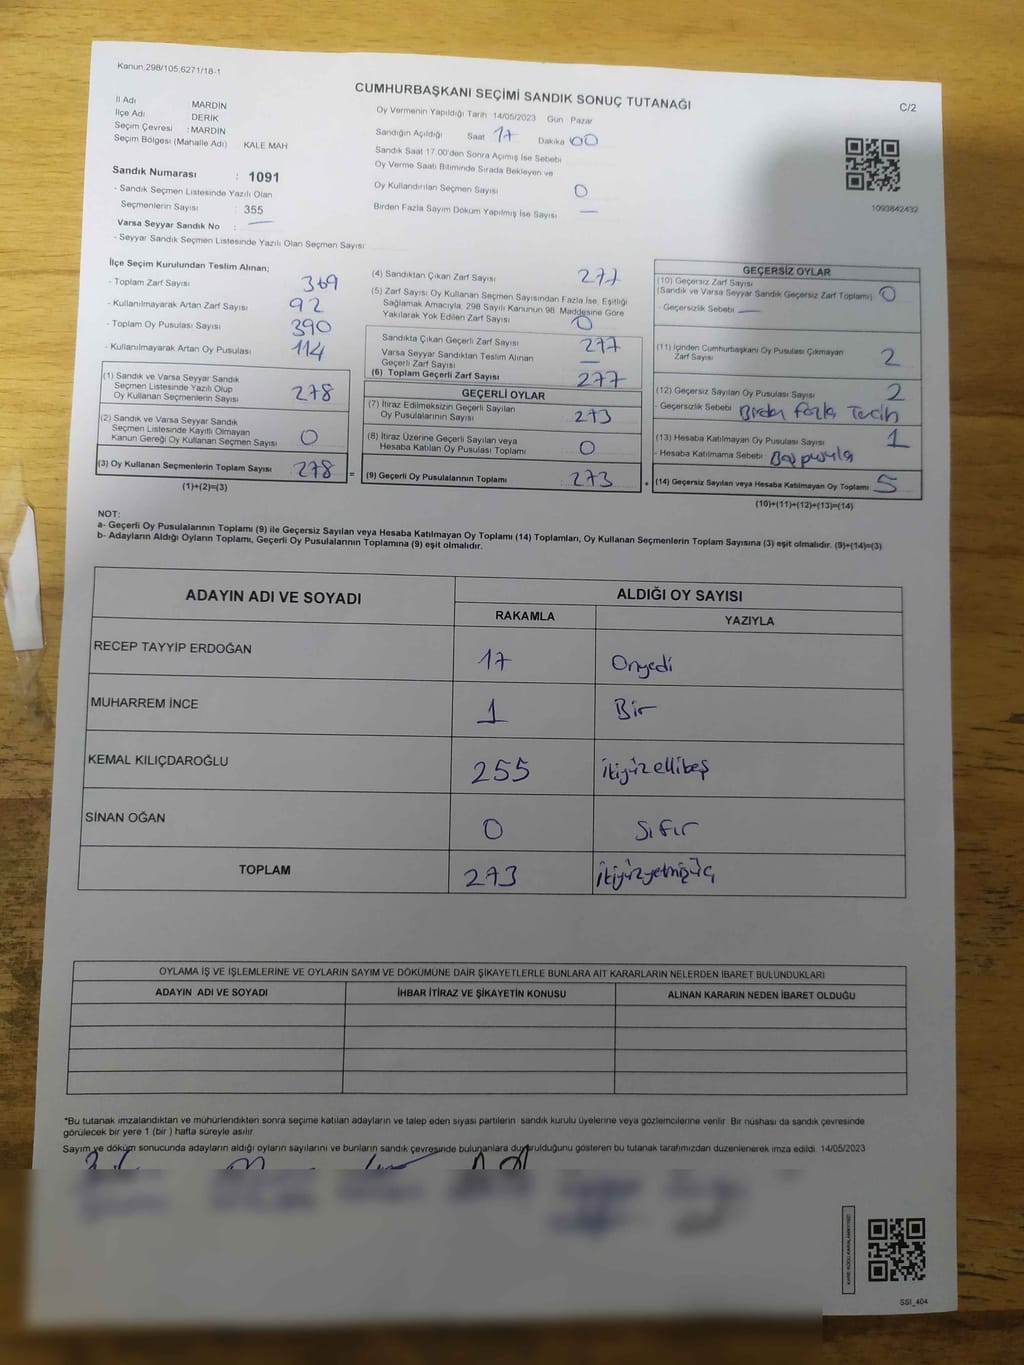 Kanun;298/105;6271/18-1
CUMHURBAŞKANI SEÇİMİ SANDIK SONUÇ TUTANAĞI
C/2
İl Adı MARDİN
İlçe Adı DERİK
Seçim Çevresi : MARDİN
Seçim Bölgesi (Mahalle Adı) KALE MAH
Sandık Numarası : 1091
- Sandık Seçmen Listesinde Yazılı Olan
Seçmenlerin Sayısı : 355
Varsa Seyyar Sandık No : —
- Seyyar Sandık Seçmen Listesinde Yazılı Olan Seçmen Sayısı
Oy Vermenin Yapıldığı Tarih 14/05/2023 Gün Pazar
Sandığın Açıldığı Saat 17 Dakika 00
Sandık Saat 17.00'den Sonra Açılmış İse Sebebi
Oy Verme Saati Bitiminde Sırada Bekleyen ve
Oy Kullandırılan Seçmen Sayısı 0
Birden Fazla Sayım Döküm Yapılmış İse Sayısı —
1093842432
İlçe Seçim Kurulundan Teslim Alınan;
- Toplam Zarf Sayısı 369
- Kullanılmayarak Artan Zarf Sayısı 92
- Toplam Oy Pusulası Sayısı 390
- Kullanılmayarak Artan Oy Pusulası 114
(1) Sandık ve Varsa Seyyar Sandık
Seçmen Listesinde Yazılı Olup
Oy Kullanan Seçmenlerin Sayısı 278
(2) Sandık ve Varsa Seyyar Sandık
Seçmen Listesinde Kayıtlı Olmayan
Kanun Gereği Oy Kullanan Seçmen Sayısı 0
(3) Oy Kullanan Seçmenlerin Toplam Sayısı 278 =
(1)+(2)=(3)
(4) Sandıktan Çıkan Zarf Sayısı 277
(5) Zarf Sayısı Oy Kullanan Seçmen Sayısından Fazla İse, Eşitliği
Sağlamak Amacıyla, 298 Sayılı Kanunun 98. Maddesine Göre
Yakılarak Yok Edilen Zarf Sayısı 0
Sandıkta Çıkan Geçerli Zarf Sayısı 277
Varsa Seyyar Sandıktan Teslim Alınan
Geçerli Zarf Sayısı —
(6) Toplam Geçerli Zarf Sayısı 277
GEÇERLİ OYLAR
(7) İtiraz Edilmeksizin Geçerli Sayılan
Oy Pusulalarının Sayısı 273
(8) İtiraz Üzerine Geçerli Sayılan veya
Hesaba Katılan Oy Pusulası Toplamı 0
(9) Geçerli Oy Pusulalarının Toplamı 273 +
GEÇERSİZ OYLAR
(10) Geçersiz Zarf Sayısı
(Sandık ve Varsa Seyyar Sandık Geçersiz Zarf Toplamı) 0
- Geçersizlik Sebebi —
(11) İçinden Cumhurbaşkanı Oy Pusulası Çıkmayan
Zarf Sayısı 2
(12) Geçersiz Sayılan Oy Pusulası Sayısı 2
- Geçersizlik Sebebi Birden fazla Tercih
(13) Hesaba Katılmayan Oy Pusulası Sayısı 1
- Hesaba Katılmama Sebebi Boş pusula
(14) Geçersiz Sayılan veya Hesaba Katılmayan Oy Toplamı 5
(10)+(11)+(12)+(13)=(14)
NOT:
a- Geçerli Oy Pusulalarının Toplamı (9) ile Geçersiz Sayılan veya Hesaba Katılmayan Oy Toplamı (14) Toplamları, Oy Kullanan Seçmenlerin Toplam Sayısına (3) eşit olmalıdır. (9)+(14)=(3)
b- Adayların Aldığı Oyların Toplamı, Geçerli Oy Pusulalarının Toplamına (9) eşit olmalıdır.
ADAYIN ADI VE SOYADI ALDIĞI OY SAYISI
RAKAMLA YAZIYLA
RECEP TAYYİP ERDOĞAN 17 Onyedi
MUHARREM İNCE 1 Bir
KEMAL KILIÇDAROĞLU 255 ikiyüzellibeş
SİNAN OĞAN 0 Sıfır
TOPLAM 273 ikiyüzyetmişüç
OYLAMA İŞ VE İŞLEMLERİNE VE OYLARIN SAYIM VE DÖKÜMÜNE DAİR ŞİKAYETLERLE BUNLARA AİT KARARLARIN NELERDEN İBARET BULUNDUKLARI
ADAYIN ADI VE SOYADI İHBAR İTİRAZ VE ŞİKAYETİN KONUSU ALINAN KARARIN NEDEN İBARET OLDUĞU
*Bu tutanak imzalandıktan ve mühürlendikten sonra seçime katılan adayların ve talep eden siyasi partilerin sandık kurulu üyelerine veya gözlemcilerine verilir. Bir nüshası da sandık çevresinde
görülecek bir yere 1 (bir ) hafta süreyle asılır.
Sayım ve döküm sonucunda adayların aldığı oyların sayılarını ve bunların sandık çevresinde bulunanlara duyurulduğunu gösteren bu tutanak tarafımızdan düzenlenerek imza edildi. 14/05/2023
SSI_404